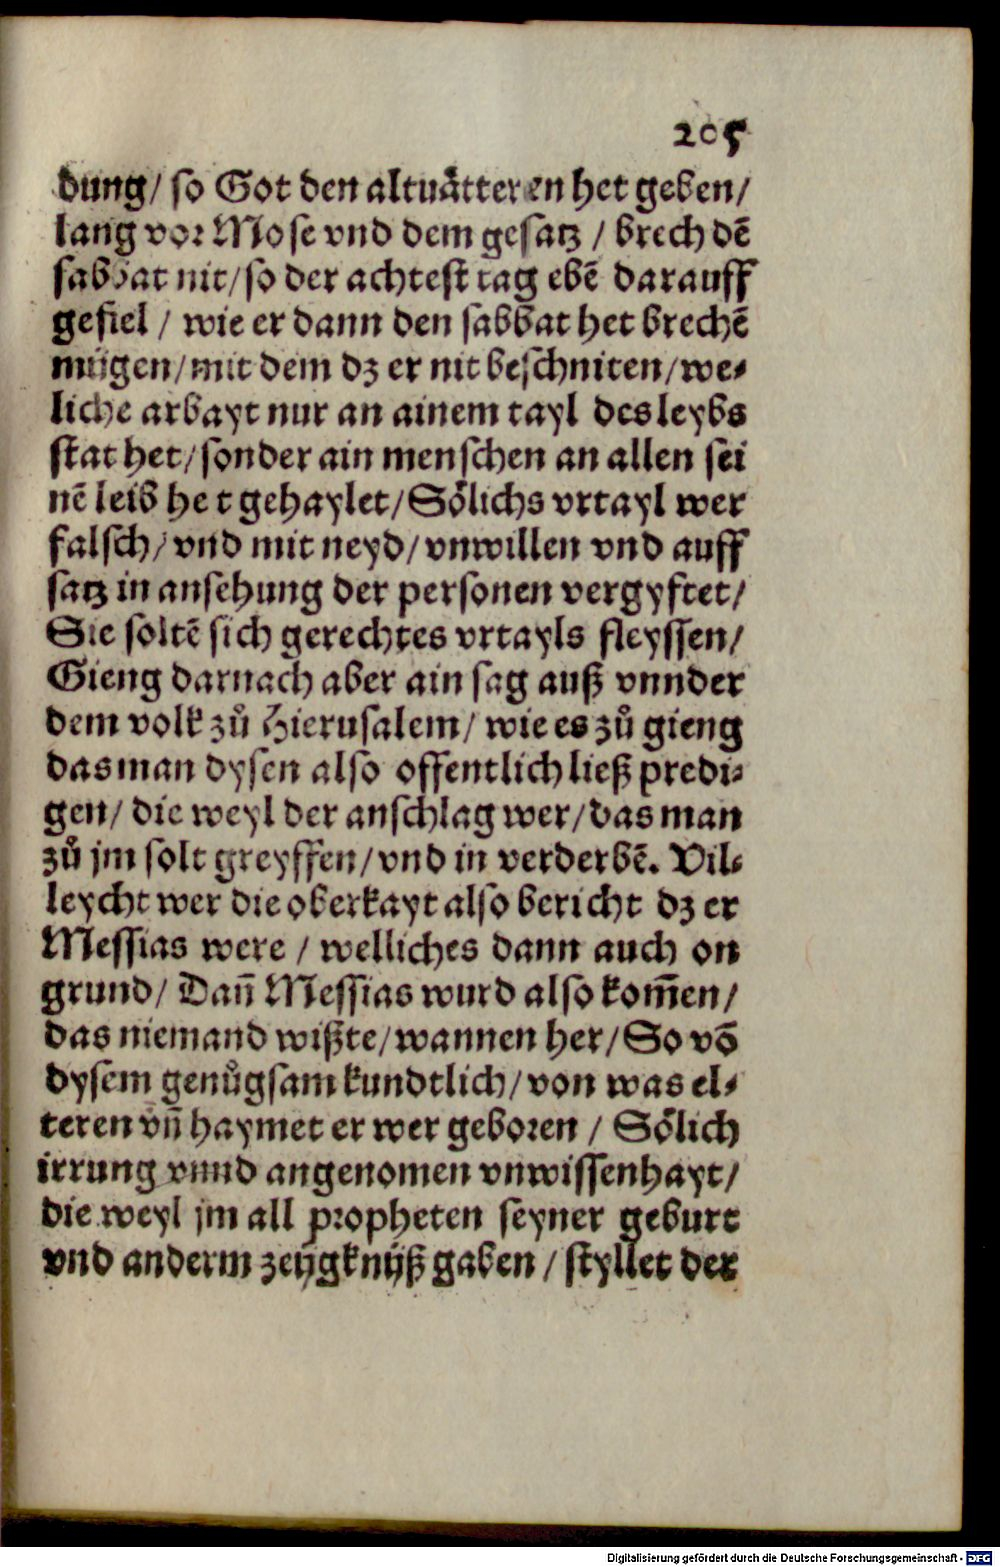 205
dung/ so Got den altuåtteren het geben/
lang vor Mose vnd dem gesatz / brech dē
sabbat nit/ so der achtest tag ebē darauff
gefiel / wie er dann den sabbat het brechē
mügen/ mit dem dz er nit beschniten/ we⸗
liche arbayt nur an ainem tayl des leybs
stat het/ sonder ain menschen an allen sei
nē leib het gehaylet/ Sőlichs vrtayl wer
falsch/ vnd mit neyd/ vnwillen vnd auff
satz in ansehung der personen vergyftet/
Sie soltē sich gerechtes vrtayls fleyssen/
Gieng darnach aber ain sag auß vnnder
dem volk zů Hierusalem/ wie es zů gieng
das man dysen also offentlich ließ predi⸗
gen/ die weyl der anschlag wer/ das man
zů jm solt greyffen/ vnd in verderbē. Vil⸗
leycht wer die oberkayt also bericht dz er
Messias were / welliches dann auch on
grund/ Dañ Messias wurd also kom̄en/
das niemand wißte/ wannen her/ So vō
dysem genůgsam kundtlich/ von was el⸗
teren vñ haymet er wer geboren / Sőlich
irrung vnnd angenomen vnwissenhayt/
die weyl jm all propheten seyner geburt
vnd anderm zeügknüß gaben / styllet der
Digitalisierung gefördert durch die Deutsche Forschungsgemeinschaft - DFG